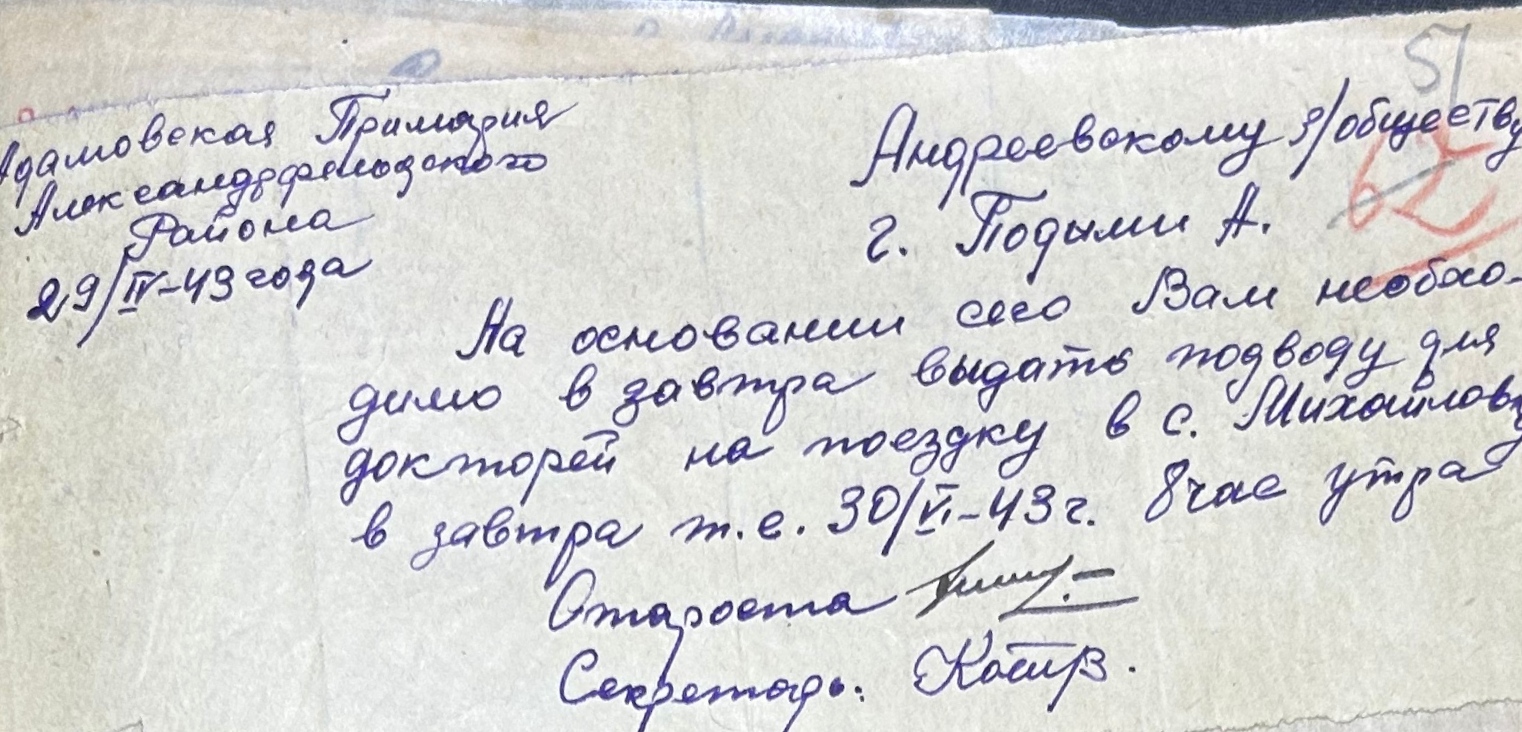 51
62
Адамовская Примария
Александрфельдского
Района
29/IV-43 года
Андреевскому з/обществу
г. Подыми А.
На основании сего Вам необхо-
димо в завтра выдать подводу для
докторей на поездку в с. Михайловку
в завтра т.е. 30/VI-43 г. 8 час утра
Староста
Секретарь: